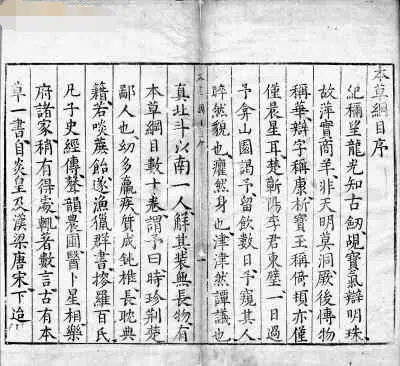 本草綱目序
紀稱望龍光知古劒覘寶氣辯明珠
故萍實商羊非天明莫洞厥後博物
稱華辯字稱康析寶玉稱倚頓亦僅
僅晨星耳楚蘄陽李君東璧一日過
予弇山園謁予留飲數日予窺其人
睟然貌也癯然身也津津然譚議也
真北斗以南一人解其裝無長物有
本草綱目數十卷謂予曰時珍荊楚
鄙人也幼多羸疾質成鈍椎長耽典
籍若啖蔗飴遂漁獵群書搜羅百氏
凡子史經傳聲韻農圃醫卜星相樂
府諸家稍有得處輒著數言古有本
草一書自炎皇及漢梁唐宋下迨